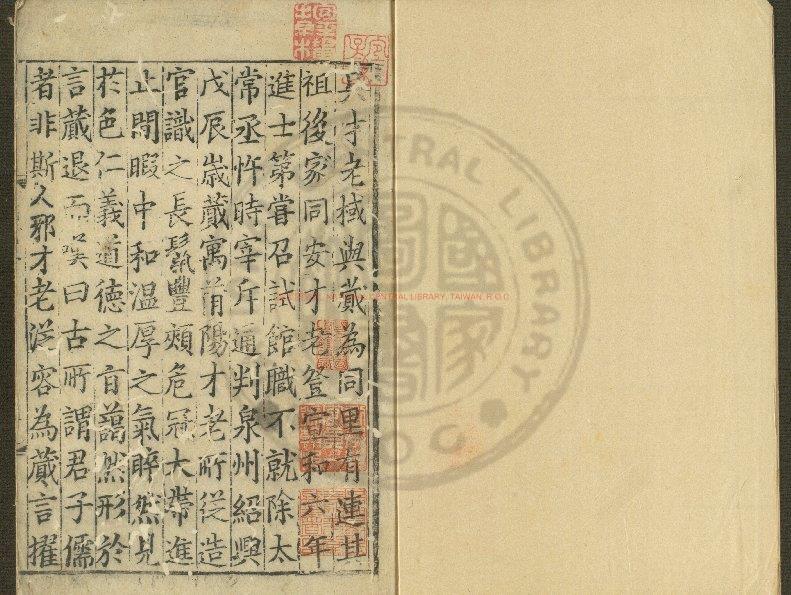 吳才老棫與蕆為同里有連其
祖後家同安才老登宣和六年
進士第嘗召試館職不就除太
常丞忤時宰斥通判泉州紹興
戊辰歲蕆寓莆陽才老所從造
官識之長鬚豐頰危冠大帶進
止閒暇中和溫厚之氣睟然見
於色仁義道德之言藹然形於
言蕆退而嘆曰古所謂君子儒
者非斯人邪才老從容為蕆言擢
NATIONAL CENTRAL LIBRARY, TAIWAN, R.O.C
國家圖書
CENTRAL LIBRARY
ROC